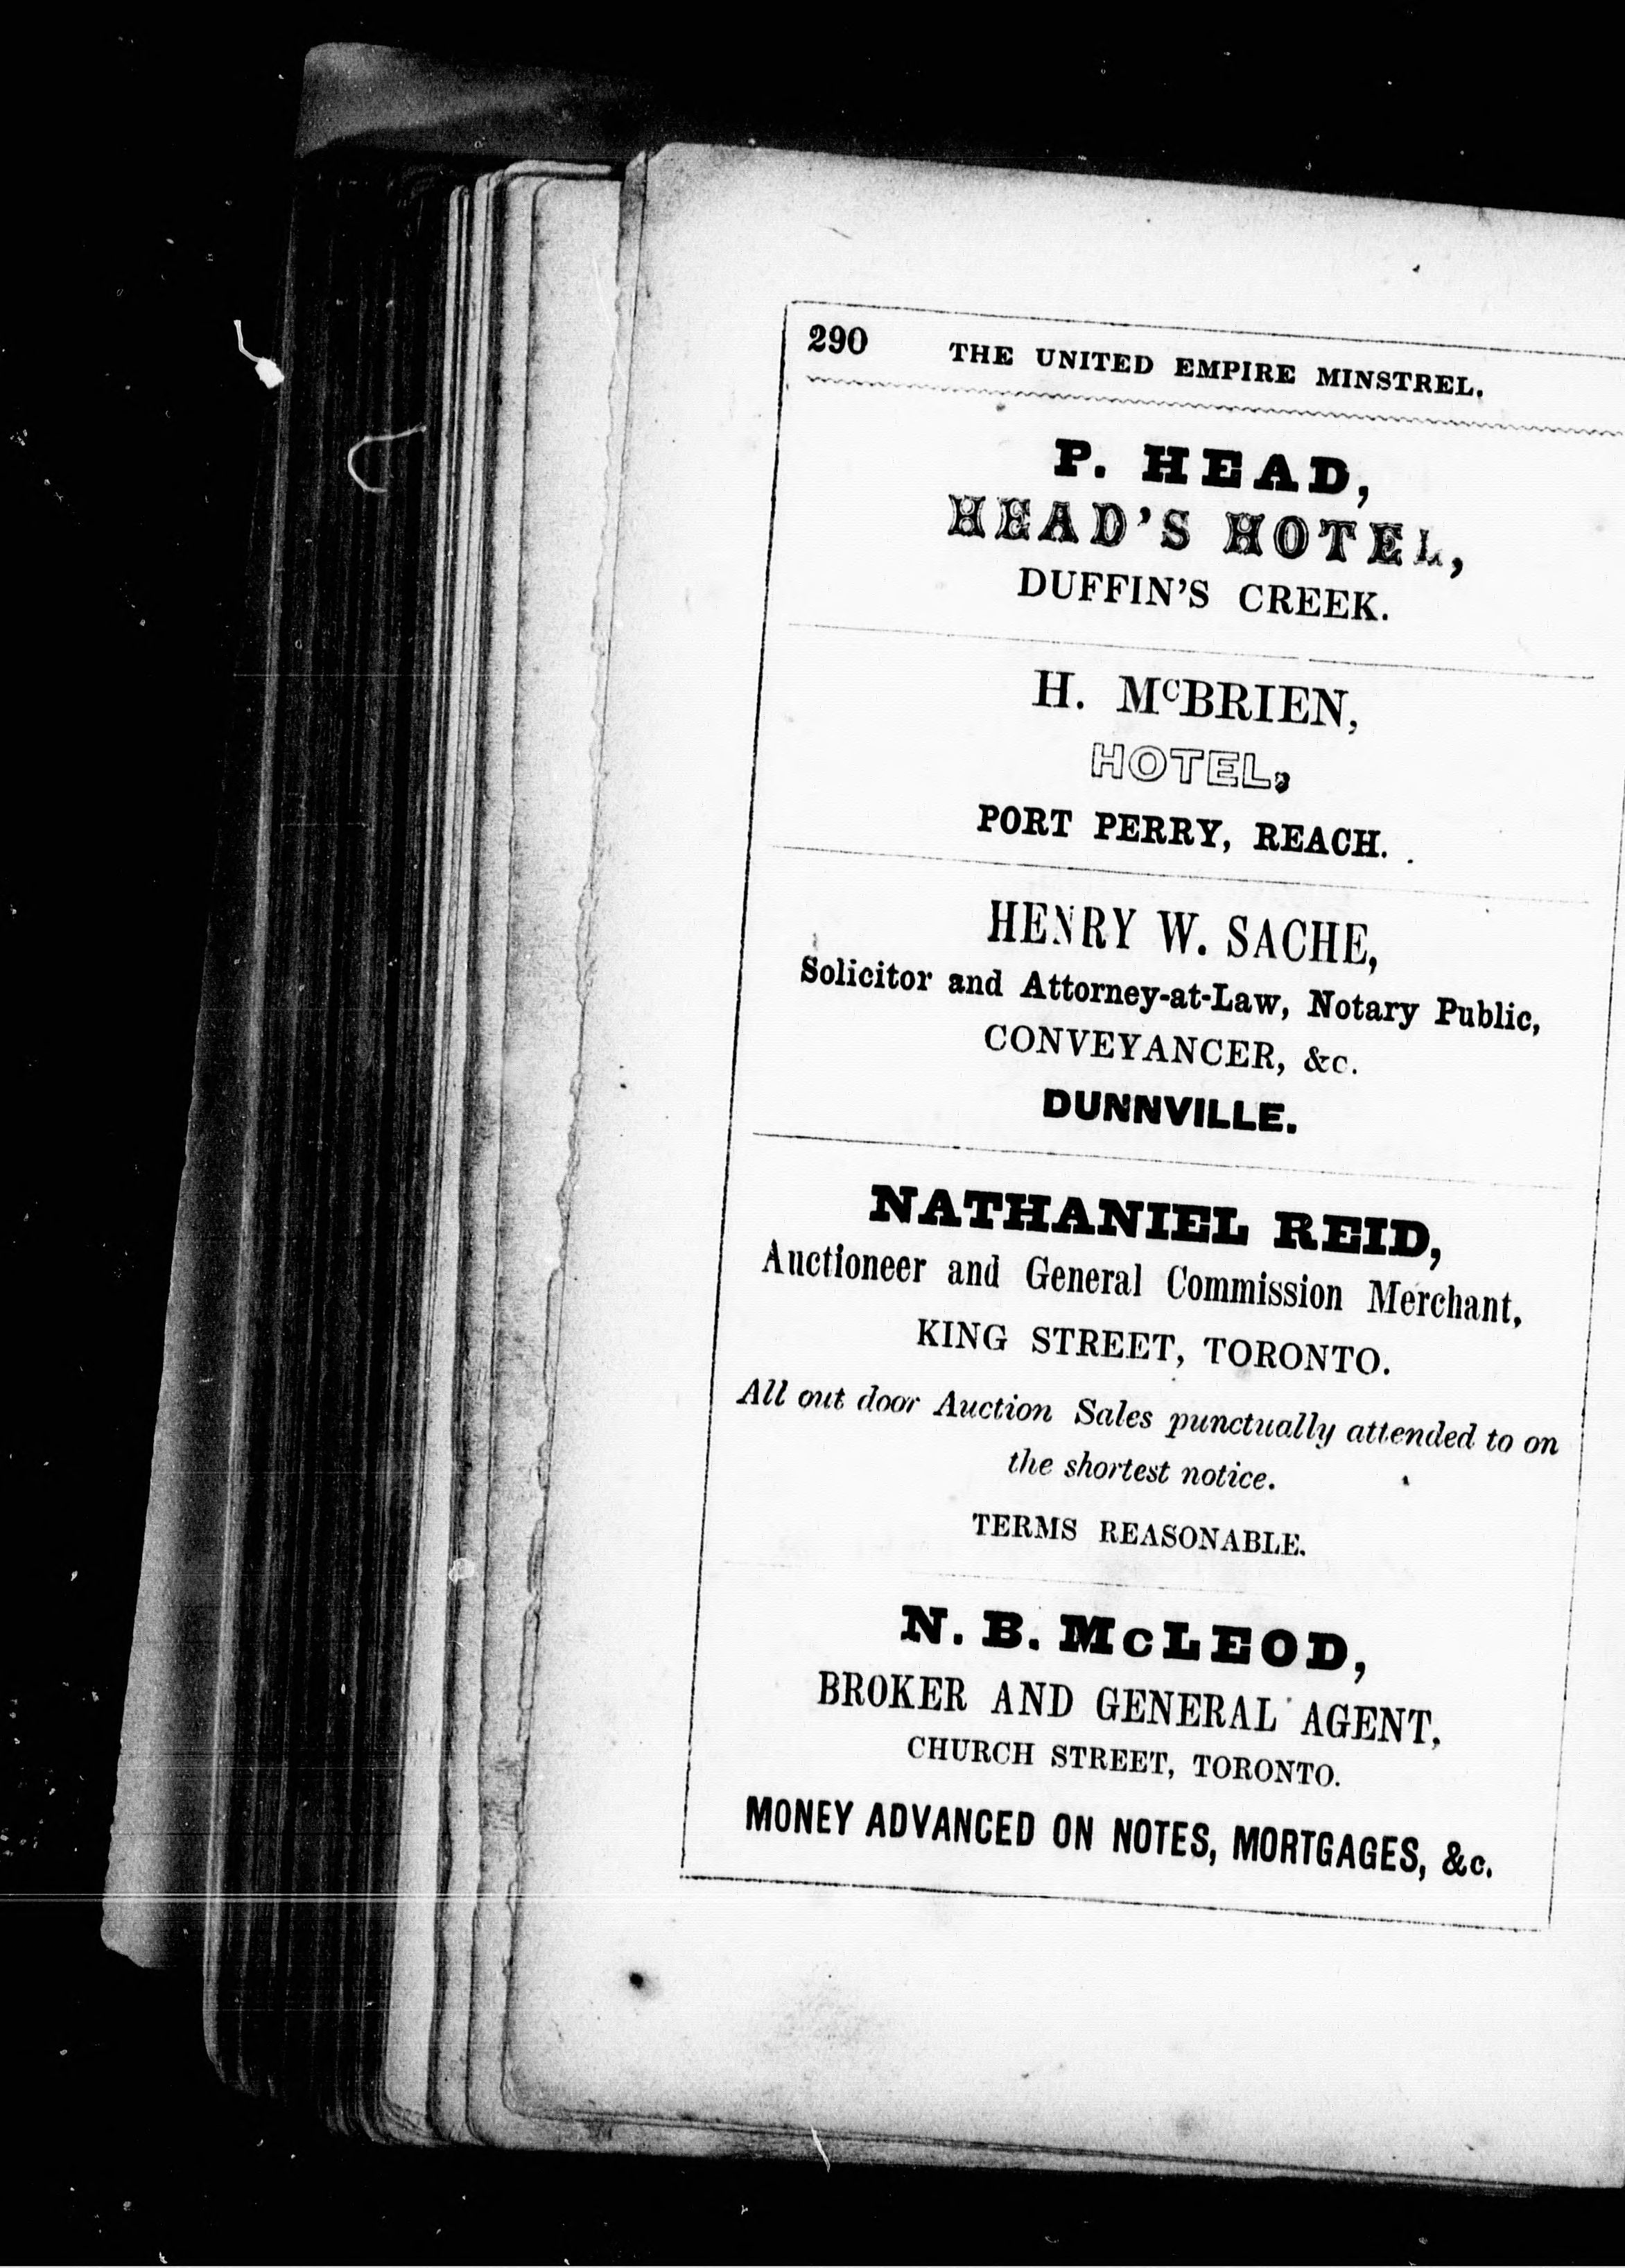 290 THE UNITED EMPIRE MINSTREL.
P. HEAD,
HEAD'S HOTEL,
DUFFIN'S CREEK.
H. McBRIEN,
HOTEL,
PORT PERRY, REACH.
HENRY W. SACHE,
Solicitor and Attorney-at-Law, Notary Public,
CONVEYANCER, &c.
DUNNVILLE.
NATHANIEL REID,
Auctioneer and General Commission Merchant,
KING STREET, TORONTO.
All out door Auction Sales punctually attended to on
the shortest notice.
TERMS REASONABLE.
N. B. McLEOD,
BROKER AND GENERAL AGENT,
CHURCH STREET, TORONTO.
MONEY ADVANCED ON NOTES, MORTGAGES, &c.